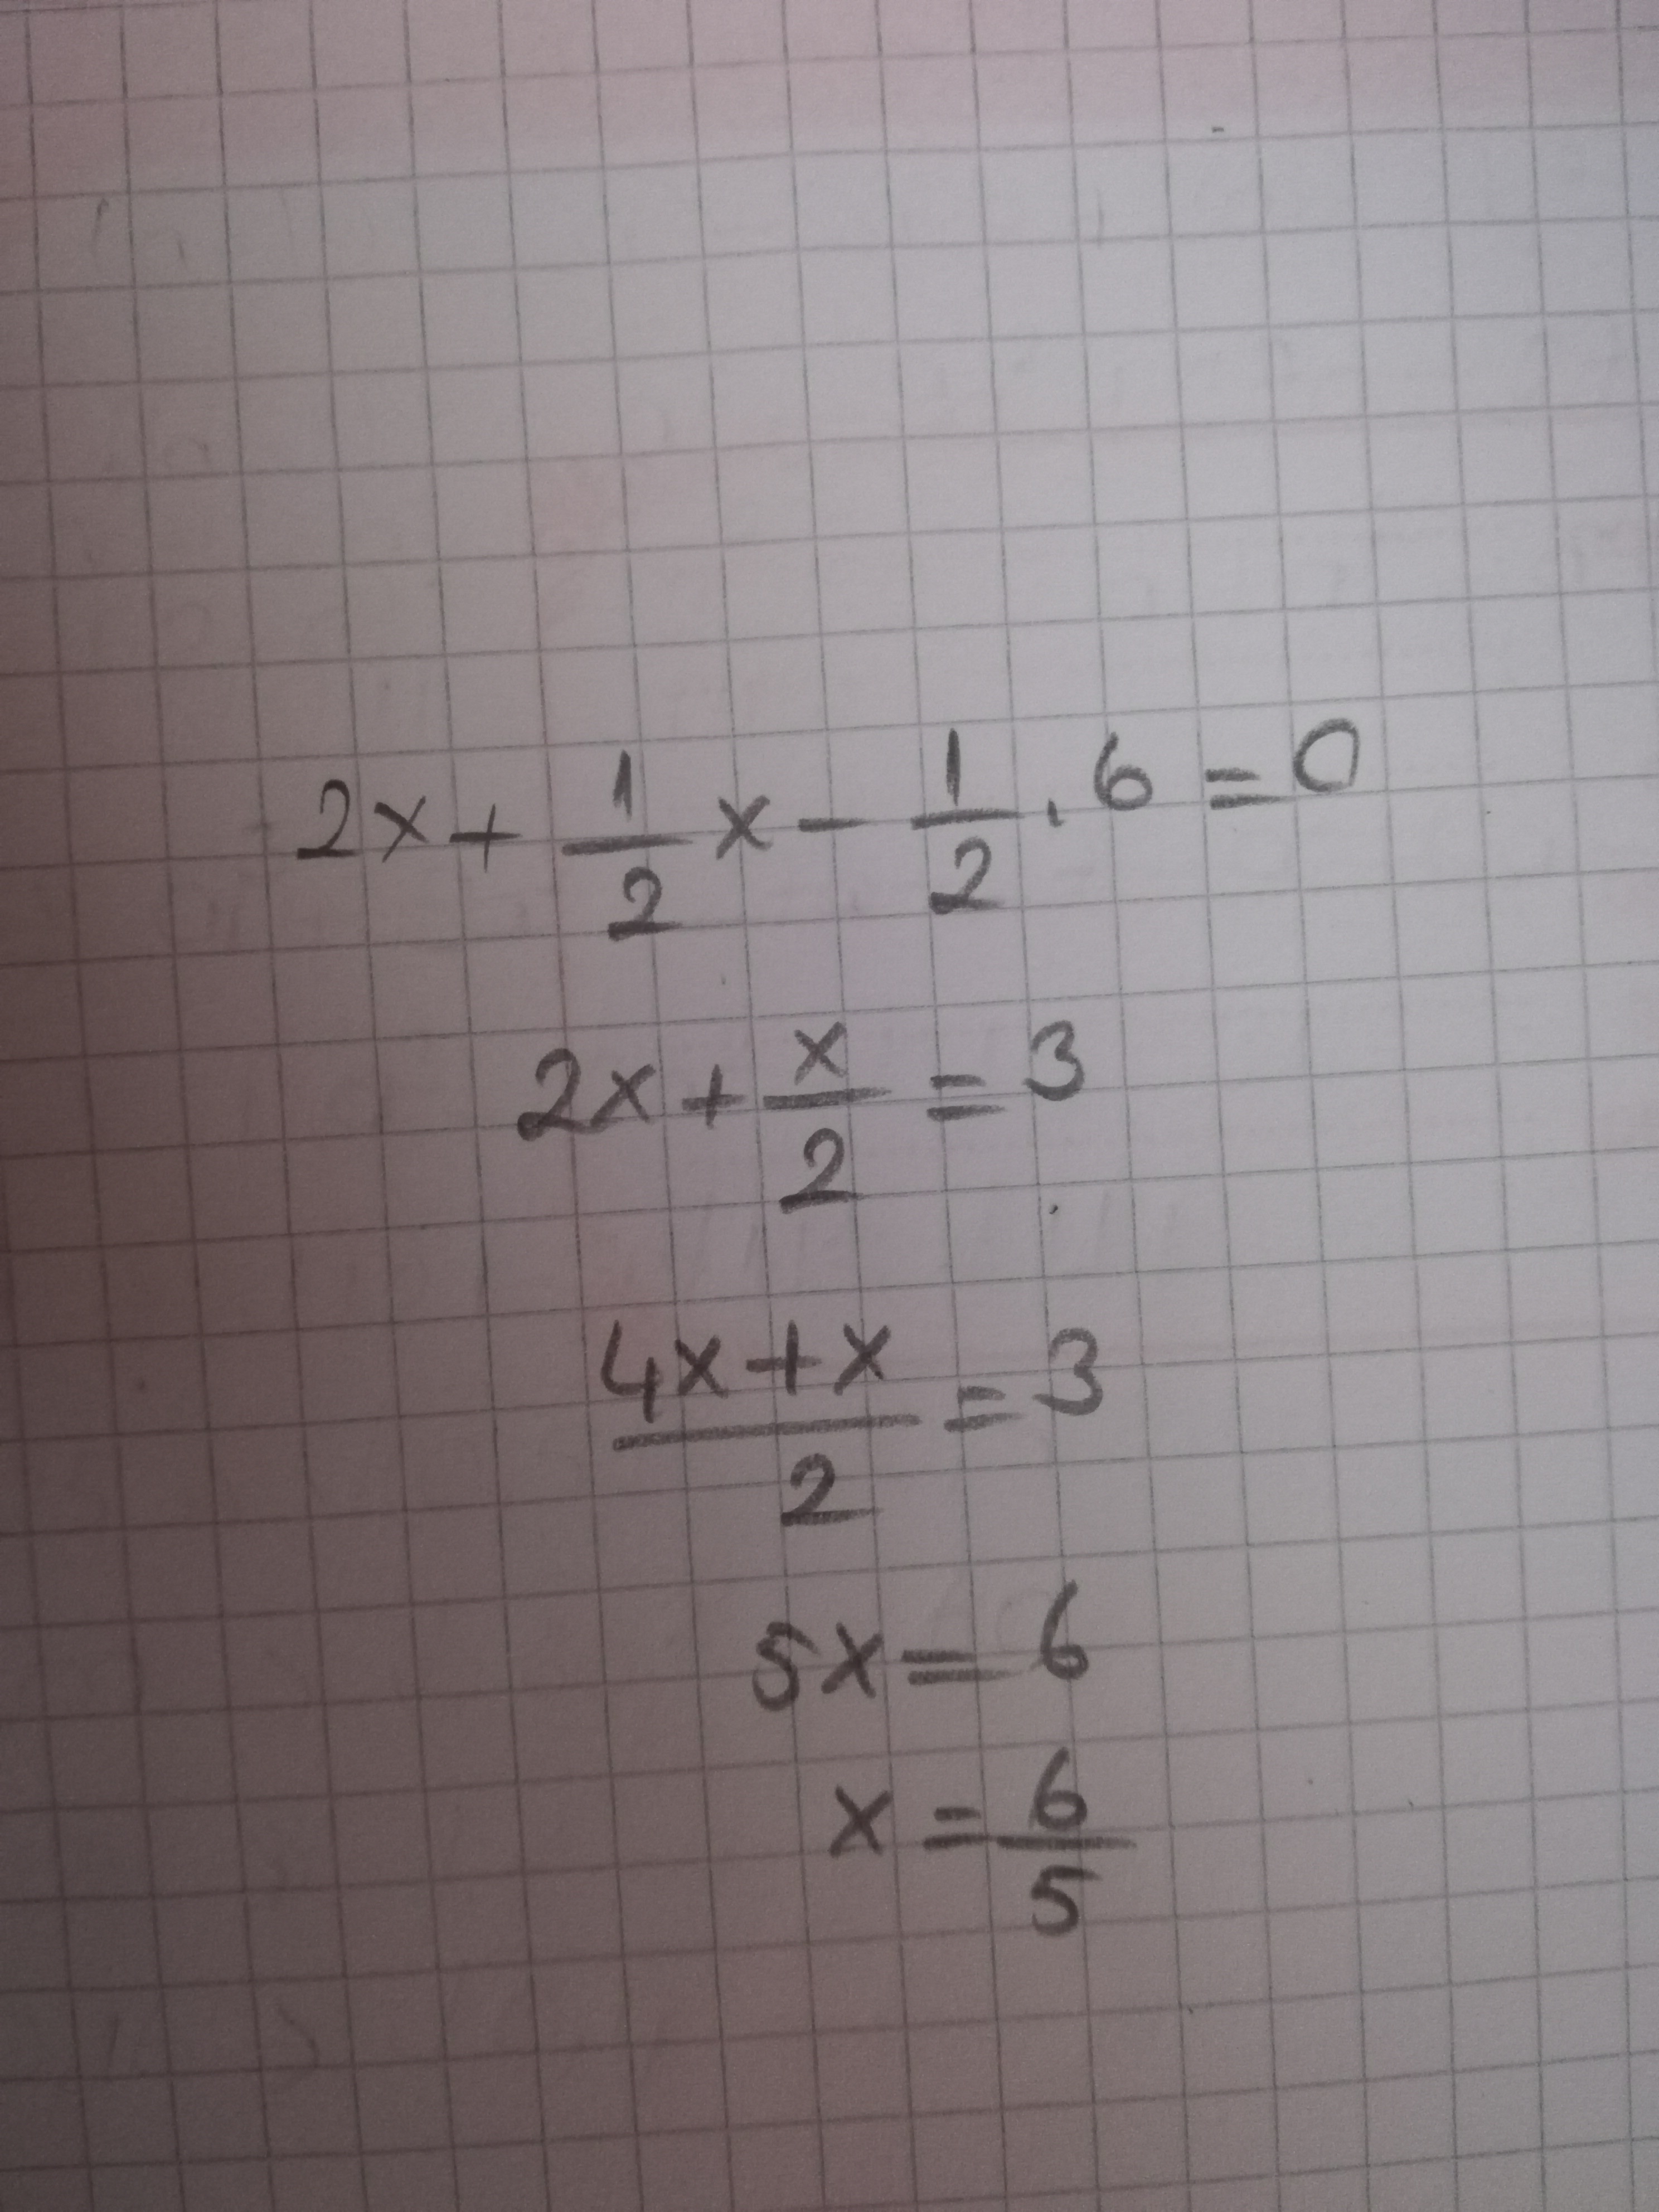 2x + 1/2 x - 1/2 . 6 = 0
2x + x/2 = 3
4x+x/2 = 3
5x = 6
x = 6/5